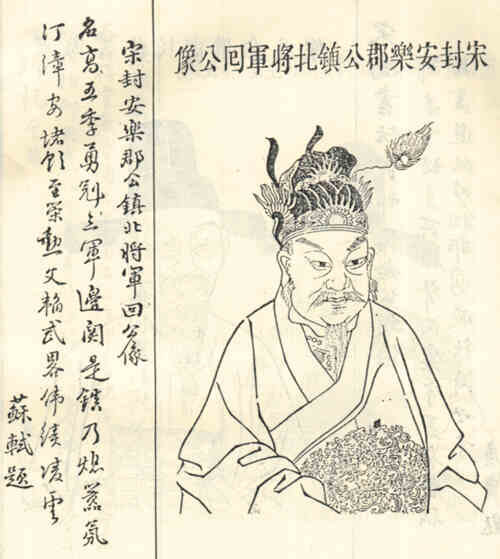 宋封安樂郡公鎮北將軍囘公像
宋封安樂郡公鎮北將軍回公像
名高五季勇冠三軍邊関是鎮乃熄氛
汀漳安堵飲至勳文武畧偉績凌雲
蘇軾題